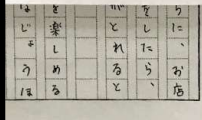 らに、お店
をしたら、
がとれると
を楽しめる
はじょうほ